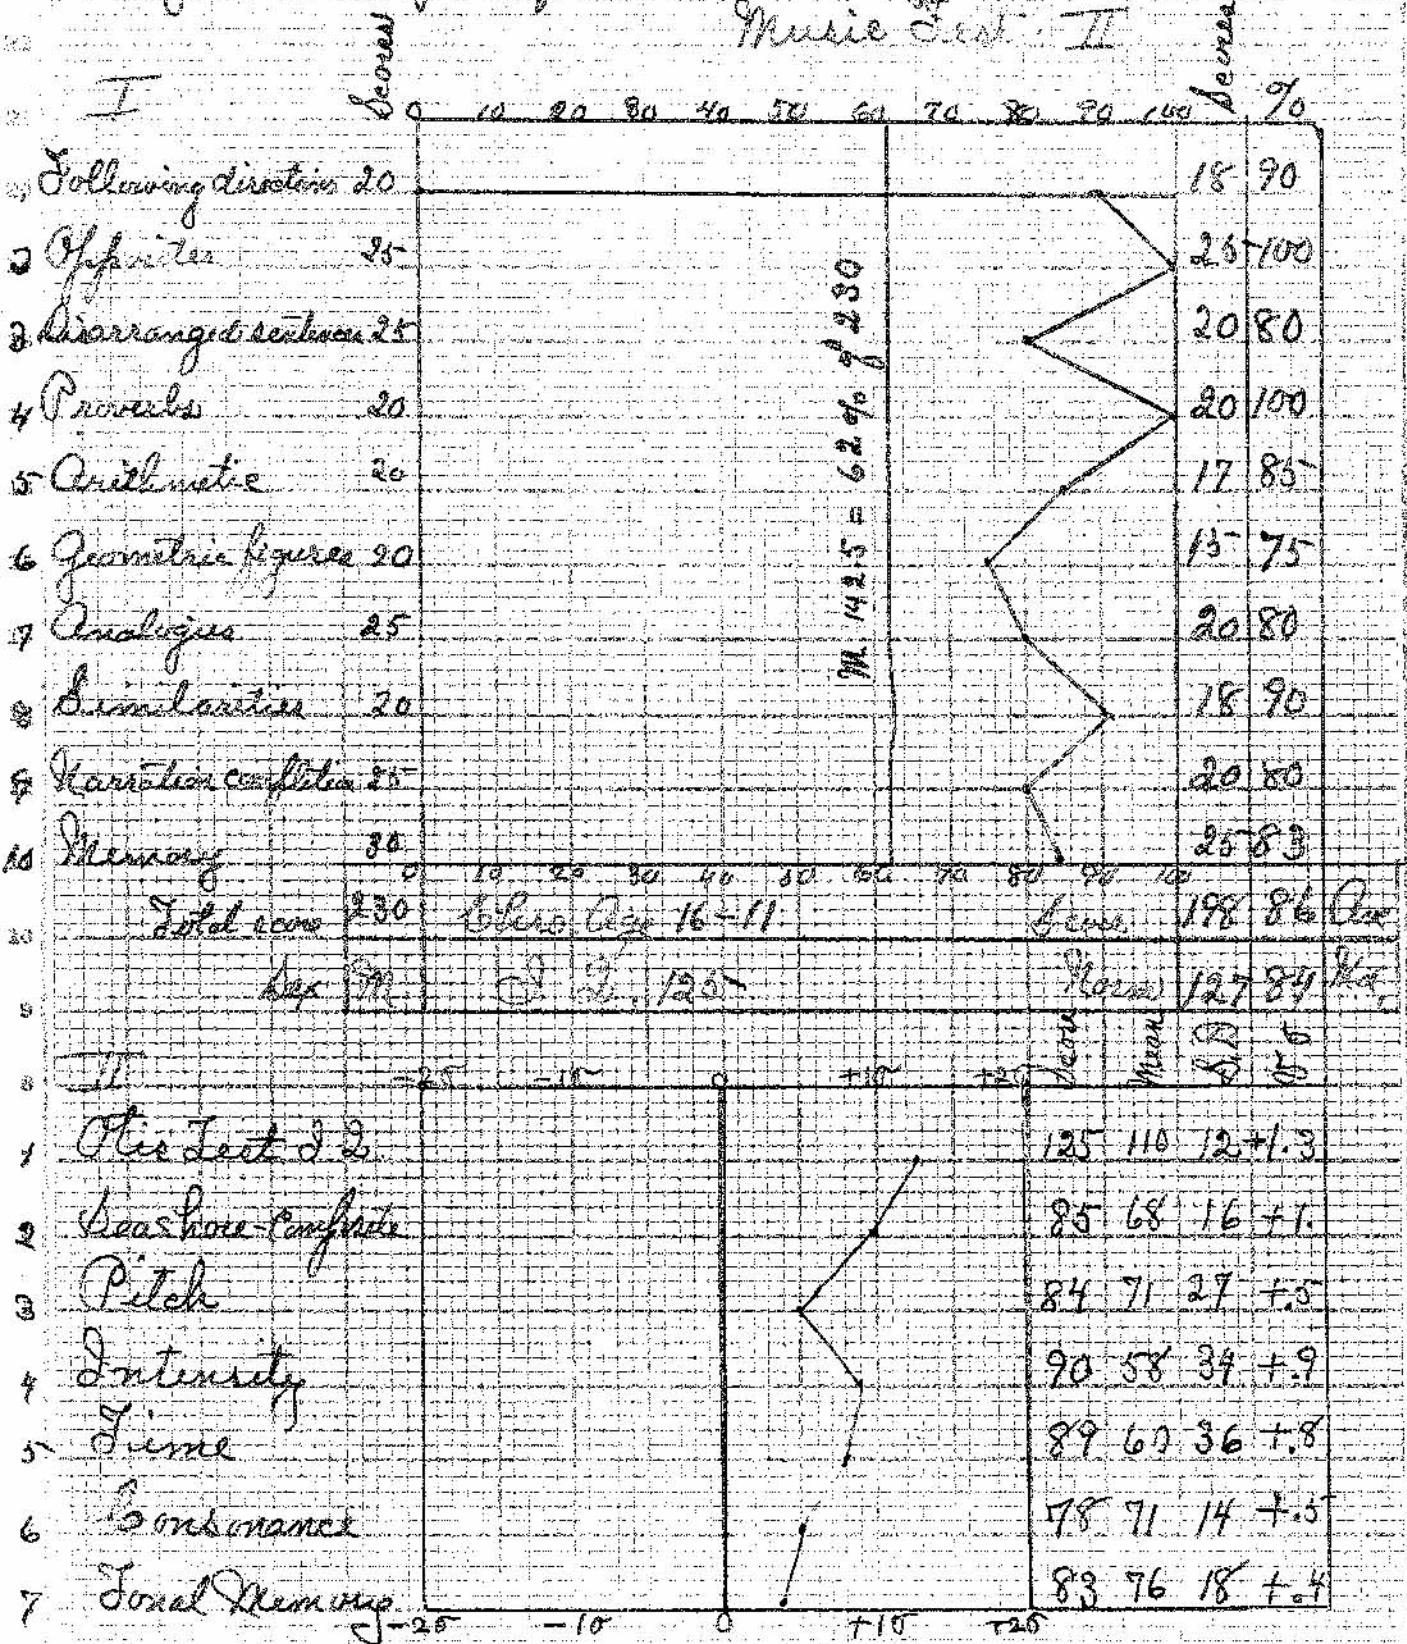 Music Test II
I Scores 0 10 20 30 40 50 60 70 80 90 100 Scores %
Following directions 20 18 90
Opposites 25 25 100
3 Disarranged sentences 25 20 80
4 Proverbs 20 20 100
5 Arithmetic 20 17 85
6 Geometric figures 20 15 75
7 Analogies 25 20 80
8 Similarities 20 18 90
9 Narration completion 25 20 80
10 Memory 30 25 83
M 142.5 = 62% of 230
0 10 20 30 40 50 60 70 80 90 100
Total score 230 Chro. Age 16-11 Score 198 86 Ave
Sex M. I.Q. 125 Norm 127 84
II -2σ -1σ 0 +1σ +2σ Score Mean S.D.
1 Otis Test I Q 125 110 12 +1.3
2 Seashore-Composite 85 68 16 +1.
3 Pitch 84 71 27 +.5
4 Intensity 90 58 34 +.9
5 Time 89 60 36 +.8
6 Consonance 78 71 14 +.5
7 Tonal Memory 83 76 18 +.4
-2σ -1σ 0 +1σ +2σ